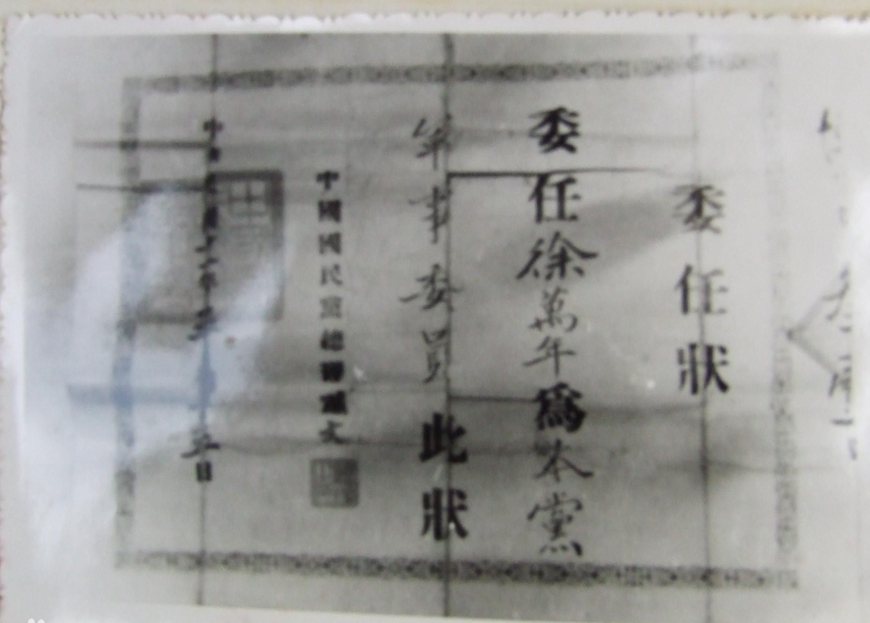 委任狀
委任徐萬年爲本黨
軍事委員此狀
中國國民黨總理孫文
中華民國十二年 五日